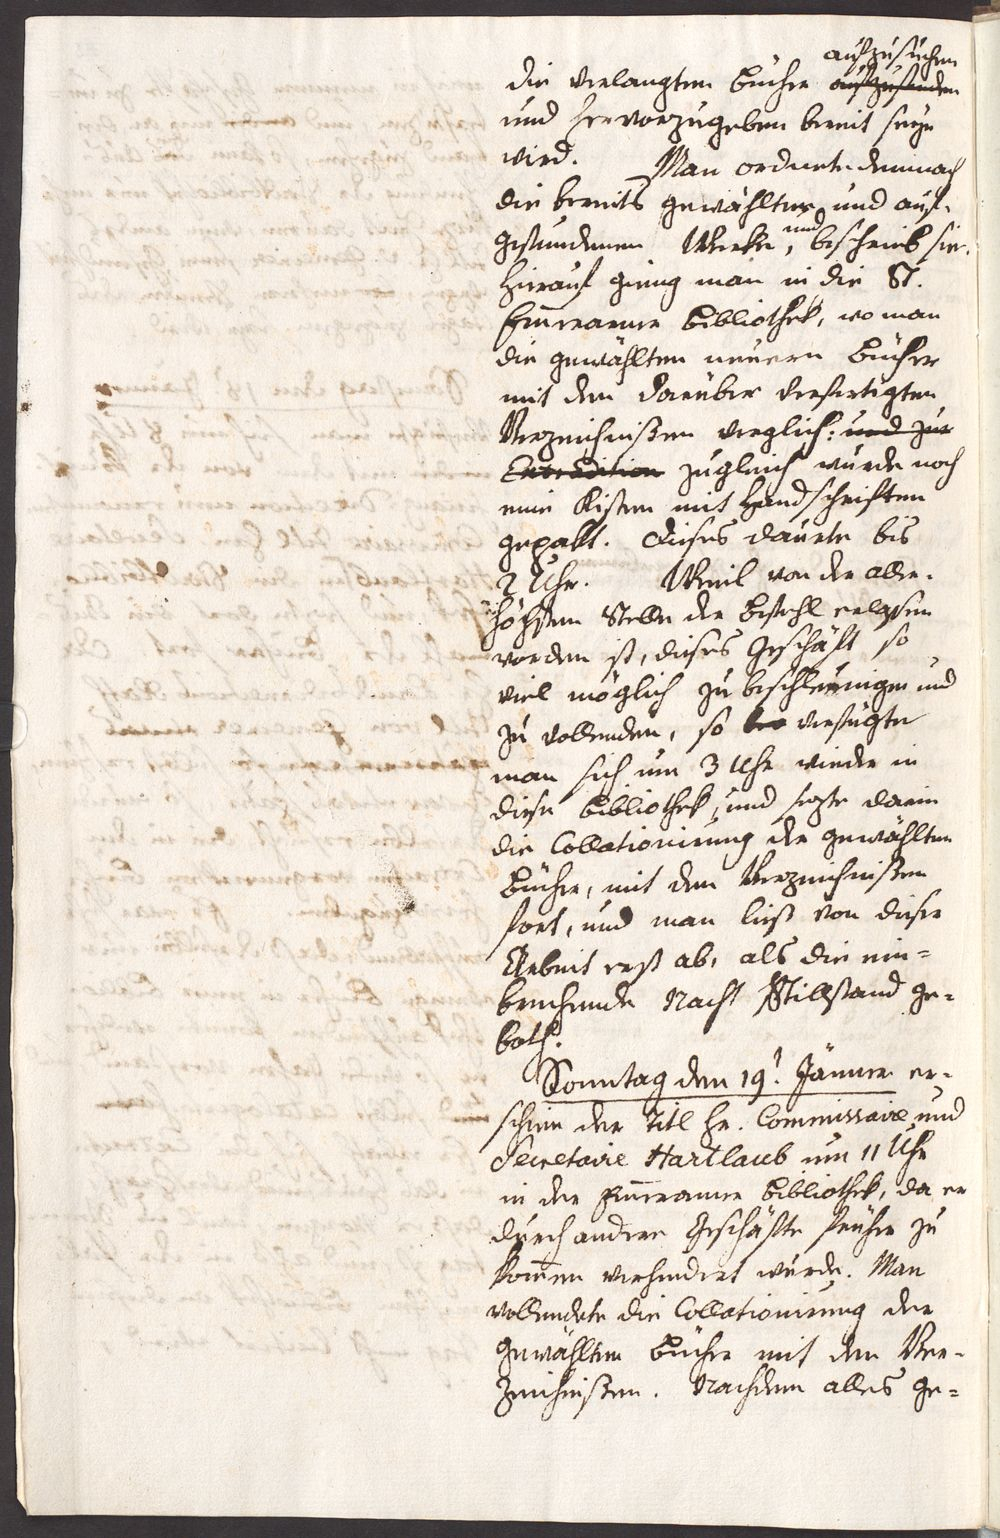 aufzusuchen
die verlangten Bücher aufzufinden
und hervorzugeben bereit seyn
wird. Man ordnete demnach
die bereits gewählten und auf-
gefundenen Werke, und beschrieb sie.
Hierauf gieng man in die St.
Em̅eramer Bibliothek, wo man
die gewählten neuern Bücher
mit den darüber verfertigten
Verzeichnißen verglich: und zur
Extradition zugleich wurde noch
eine Kisten mit Handschriften
gepakt. Dieses dauerte bis
2 Uhr. Weil von der aller-
höchsten Stelle der Befehl erlassen
worden ist, dieses Geschäft so
viel möglich zu beschleunigen und
zu vollenden, so verfügte
man sich um 3 Uhr wieder in
diese Bibliothek, und sezte darin
die Collationirung der gewählten
Bücher, mit den Verzeichnißen
fort, und man ließ von dieser
Arbeit erst ab, als die ein=
brechende Nacht Stillstand ge=
both.
Sonntag den 19t. Jänner er-
schien der Titl Hr. Commissaire und
Secretaire Hartlaub um 11 Uhr
in der Em̅eramer Bibliothek, da er
durch andere Geschäfte früher zu
kom̅en verhindert wurde. Man
vollendete die Collationirung der
gewählten Bücher mit den Ver-
zeichnißen. Nachdem alles ge=